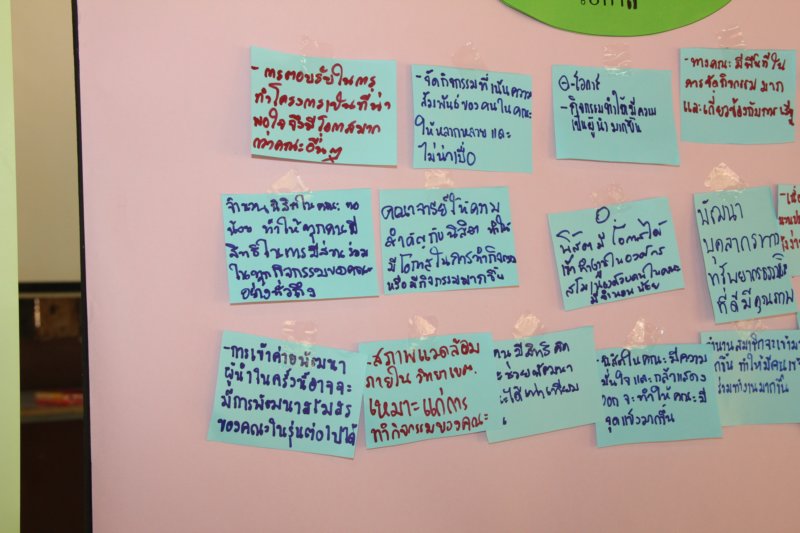 โอกาส
- การตอบรับในการ
ทำโครงการเป็นที่น่า
พอใจจึงมีโอกาสมาก
กว่าคณะอื่นๆ
- จัดกิจกรรมที่เน้นความ
สัมพันธ์ของคนในคณะ
ให้หลากหลาย และ
ไม่น่าเบื่อ
- โอกาส
- กิจกรรมทำให้มีความ
เป็นผู้นำมากขึ้น
- ทางคณะมีพื้นที่ใน
การจัดกิจกรรมมาก
และเกี่ยวข้องกับการ
จำนวนนิสิตในคณะ
น้อย ทำให้ทุกคนมี
สิทธิ์ในการมีส่วนร่วม
ในทุกกิจกรรมของคณะ
อย่างทั่วถึง
คณาจารย์ให้ความ
สำคัญกับนิสิต ทำให้
มีโอกาสในการทำกิจกรรม
หรือมีกิจกรรมมากขึ้น
O
นิสิตมีโอกาสได้
เข้าทำงานในองค์กร
สโมฯ
มีจำนวนน้อย
พัฒนา
บุคลากรทาง
ทรัพยากร
ที่ดีมีคุณภาพ
- การเข้าค่ายพัฒนา
ผู้นำในครั้งนี้อาจจะ
มีการพัฒนาสโมสร
ของคณะในรุ่นต่อไปได้
- สภาพแวดล้อม
ภายใน วิทยาเขต
เหมาะแก่การ
ทำกิจกรรมของคณะ
คนมีสิทธิ์คิด
ช่วยพัฒนา
ได้เท่าเทียม
นิสิตในคณะมีความ
มั่นใจและกล้าแสดง
ออก จะทำให้คณะมี
จุดแข็งมากขึ้น
จำนวนสมาชิกจะเข้ามา
มากขึ้น ทำให้มีคน
ร่วมทำงานมากขึ้น